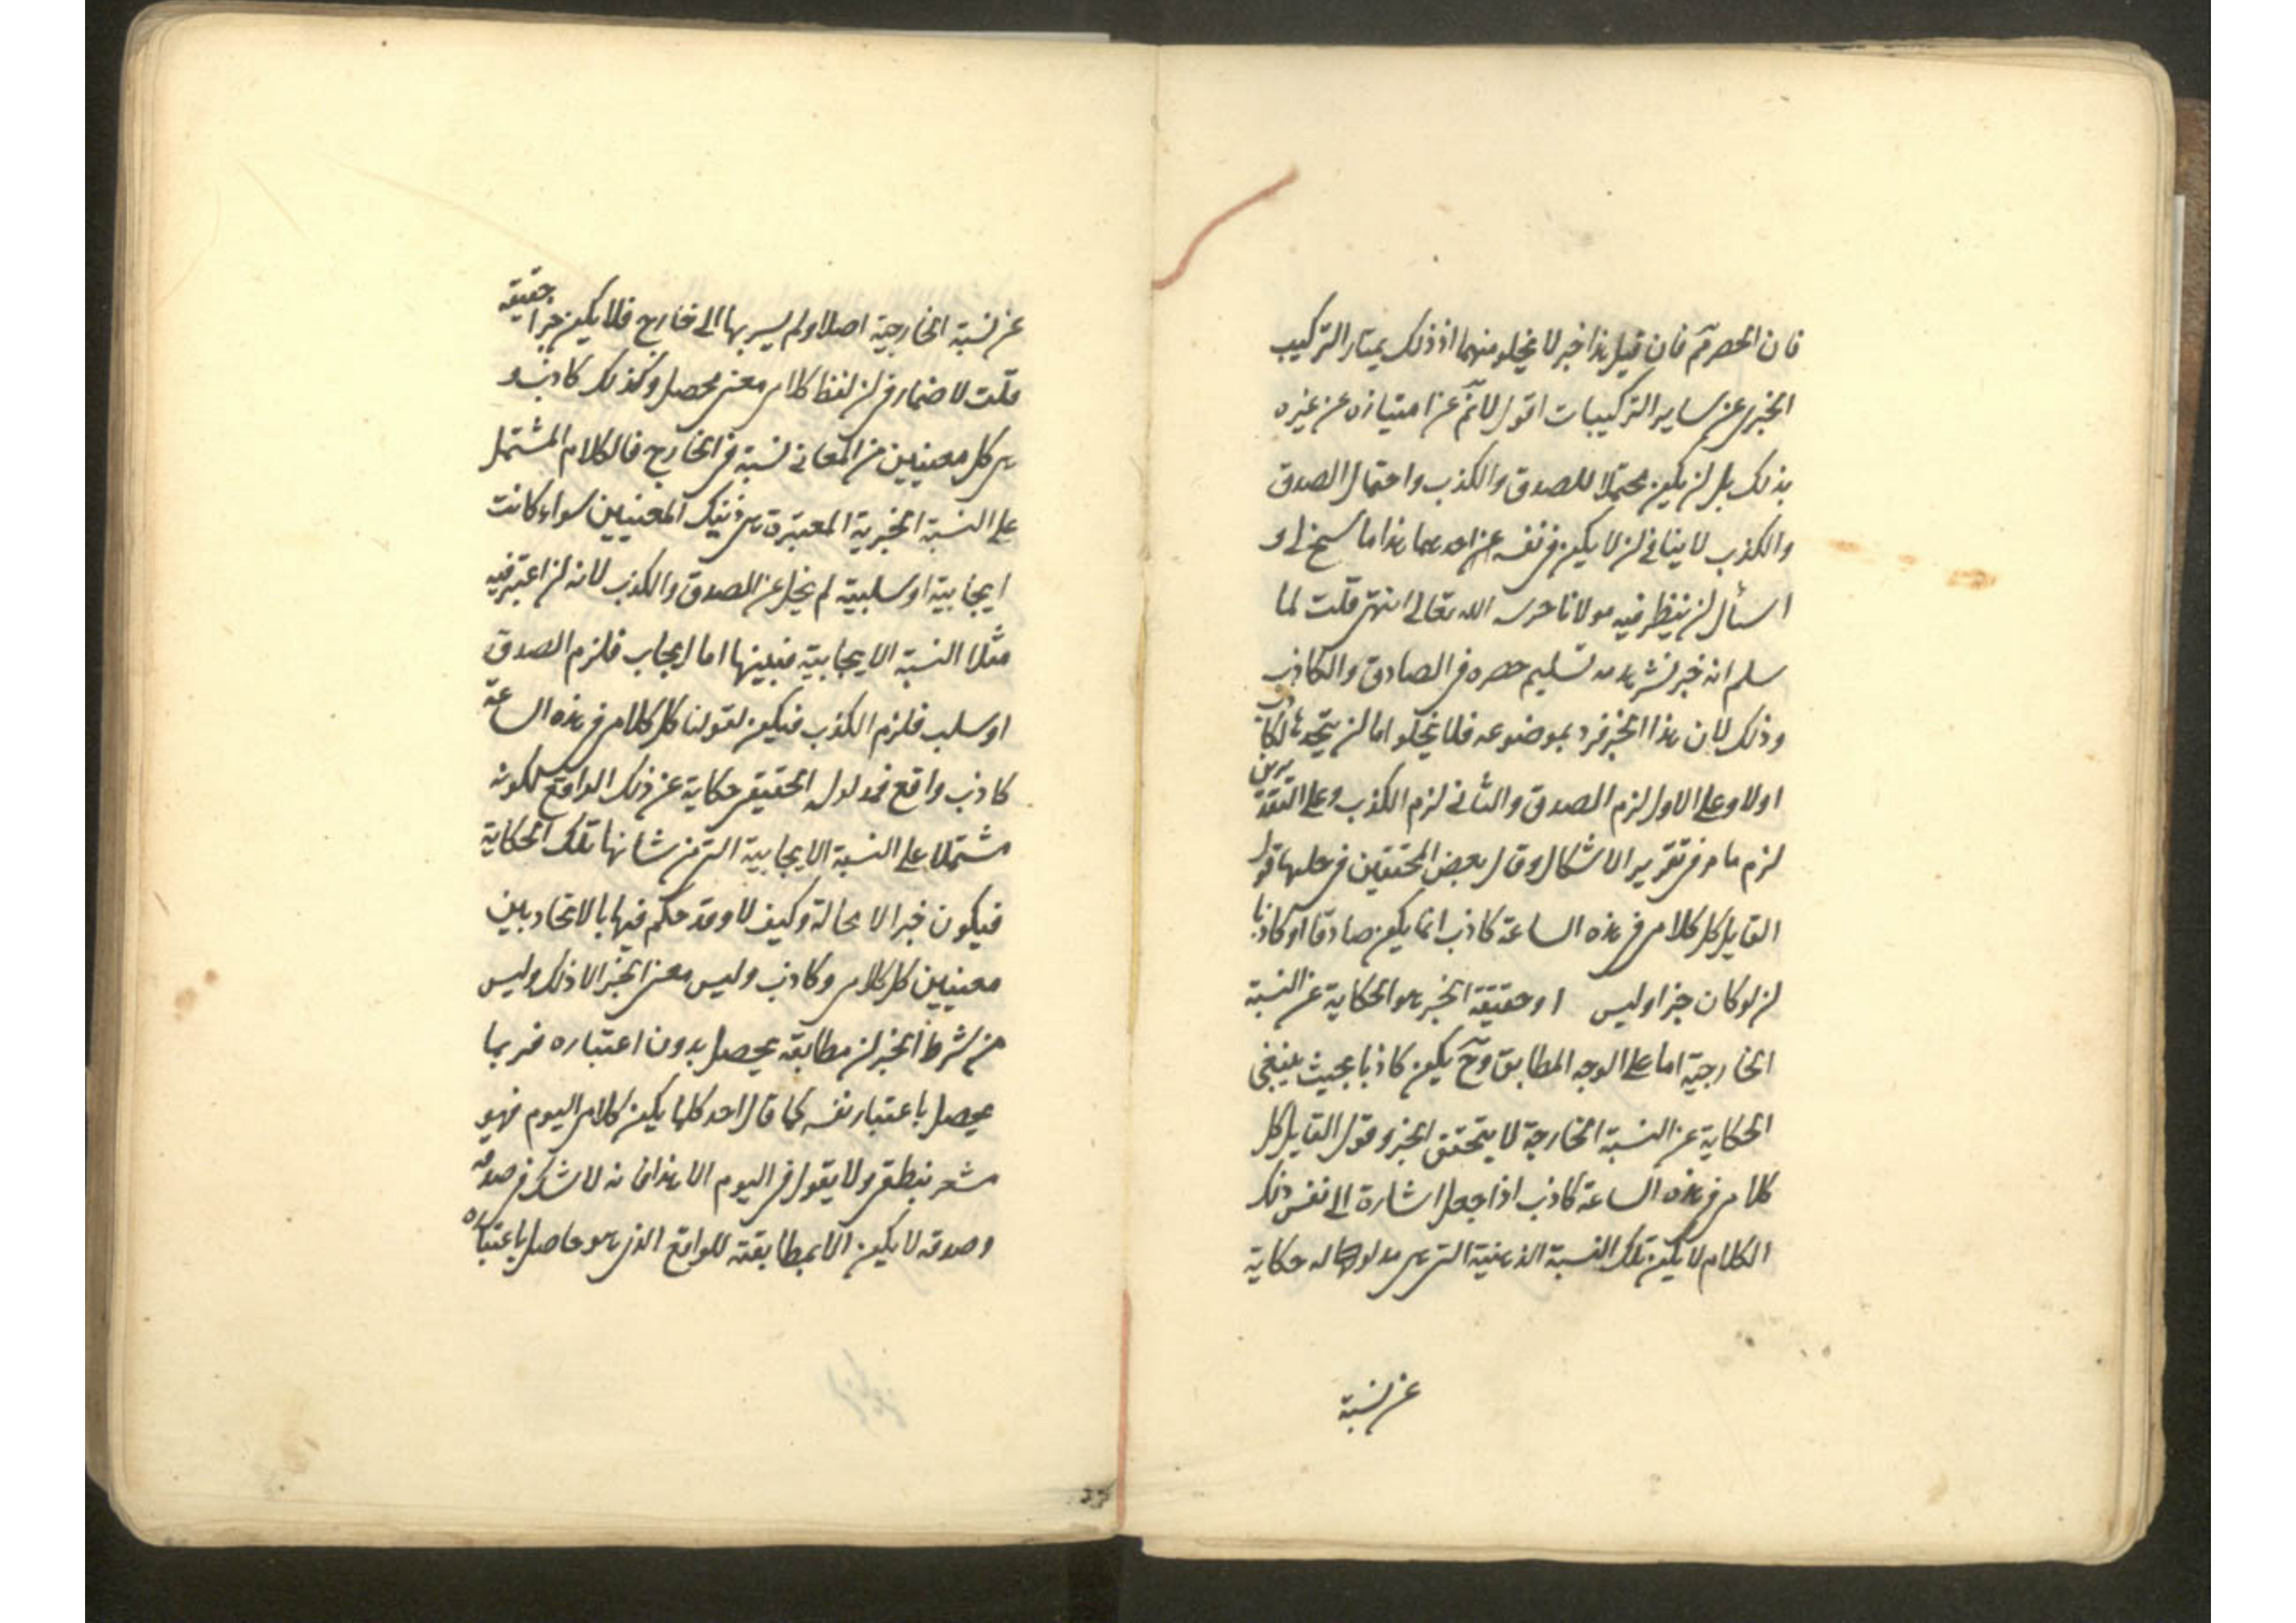 فان الحصر تم فان قيل هذا خبر لا يخلو منهما اذ ذلك يمتاز التركيب
الخبرى عن ساير التركيبات اقول لانم عن امتيازه عن غيره
بذلك بل لن يكون محتملا للصدق والكذب واحتمال الصدق
والكذب لا ينافى لن لا يكون فى نفسه عن احدهما هذا ما سنح لى و
اسأل لن ينظر فيه مولانا حرسه الله تعالى انتهى قلت لما
سلم انه خبر تسليم حصره فى الصادق والكاذب
وذلك لان هذا الخبر فرد بموضوعه فلا يخلو اما لن يتحد بالكاذب
اولا وعلى الاول لزم الصدق والثانى لزم الكذب وعلى التقديرين
لزم ما مر فى تقرير الاشكال وقال بعض المحققين فى حلها قول
القايل كل كلامى فى هذه الساعة كاذب انما يكون صادقا او كاذبا
لن لو كان خبرا وليس او حقيقة الخبر هو الحكاية عن النسبة
الخارجية اما على الوجه المطابق وح يكون كاذبا بحيث ينتفى
الحكاية عن النسبة الخارجية لا يتحقق الخبر وقول القايل كل
كلامى فى هذه الساعة كاذب اذا جعل اشارة الى نفس ذلك
الكلام لا يكون تلك النسبة الذهنية التى هى مدلوله حكاية
عن نسبة
عن نسبة الخارجية اصلا ولم يسر بها الى خارج فلا يكون خبرا حقيقة
قلت لا ضمار فى لن لفظ كلامى معنى محصل وكذلك كاذب و
هى كل معنيين من المعانى نسبة فى الخارج فالكلام المشتمل
على النسبة الخبرية المعتبرة هى ذينك المعنيين سواء كانت
ايجابية او سلبية لم يخل عن الصدق والكذب لانه لن اعتبر فيه
مثلا النسبة الايجابية فبينها اما ايجاب فلزم الصدق
او سلب فلزم الكذب فيكون لقولنا كل كلامى فى هذه الساعة
كاذب واقع فمدلوله الحقيقى حكاية عن ذلك الواقع لكونه
مشتملا على النسبة الايجابية التى من شانها تلك الحكاية
فيكون خبرا لا محالة وكيف لا وقد حكم فيها بالاتحاد بين
معنيين كل كلامى وكاذب وليس معنى الخبر الا ذلك وليس
من شرط الخبر لن مطابقه يحصل بدون اعتباره فربما
يحصل باعتبار نفسه كما قال احد كلما يكون كلامى اليوم فهو
مشعر بنطقى ولا يقول فى اليوم الا هذا فانه لا شك فى صدقه
وصدقه لا يكون الا بمطابقته للواقع الذى هو حاصل باعتباره